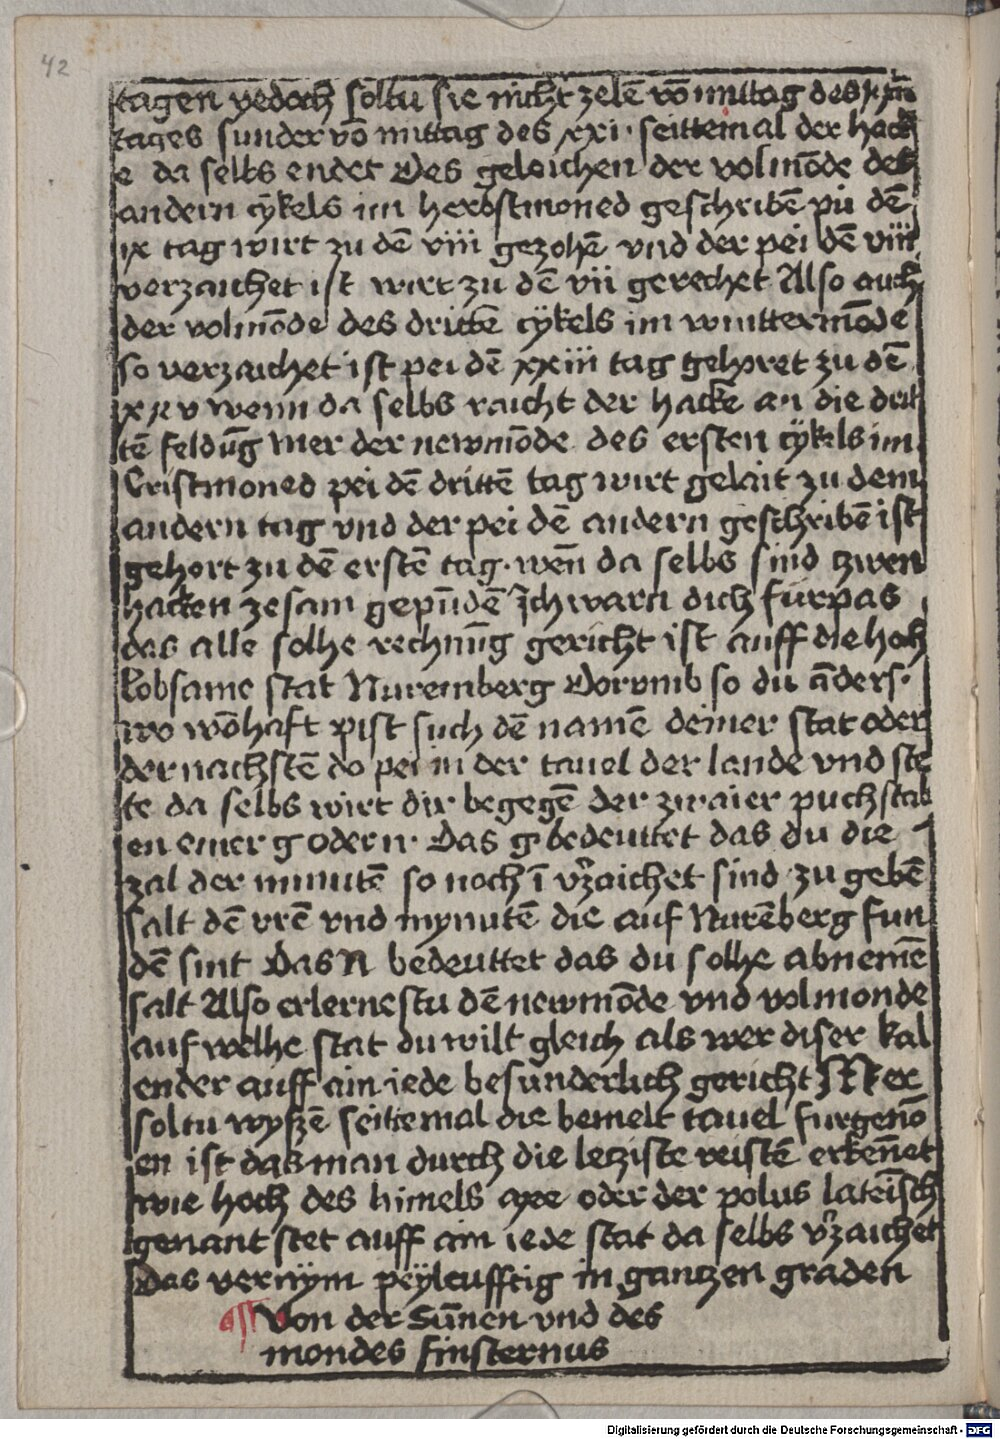 42
tagen yedoch soltu sie nicht zelē vō mittag des xxiii
tages sunder vō mittag des xxi· seittemal der hack
e da selbs endet Des geleichen der volmōde des
andern cÿkels im herbstmoned geschribē pei dē
ix tag wirt zu dē viii gezohē vnd der pei dē viii
verzaichet ist wirt zu dē vii gerechet Also auch
der volmōde des dritten cÿkels im wintermōde
so verzaichet ist pei dē xxiii tag gehoret zu dē
xxv wenn da selbs raicht der hacke an die drit
tē feldūg Mer der newmōde des ersten cÿkels im
Cristmoned pei dē drittē tag wirt gelait zu dem
andern tag vnd der pei dē andern geschribē ist
gehort zu dē erstē tag· wen̄ da selbs sind zwen
hacken zesam gepūdē Ich warn dich fürpas
das alle solhe rechnūg gericht ist auff die hoh
Lobsame stat Nuremberg Dorvmb so du āders·
wo wōhaft pist such dē namē deiner stat oder
der nachstē do pei in der tauel der lande vnd ste
te da selbs wirt dir begegē der zwaier puchstab
en einer g oder n· Das g bedeuttet das du die
zal der minutē so noch ī v̄zaichet sind zu gebē
salt dē vrē vnd mynutē die auf Nurēberg fun
dē sint Das N bedeuttet das du solhe abnemē
salt Also erlernestu dē newmōde vnd volmonde
auf welhe stat du wilt gleich als wer diser kal
ender auff ain iede besunderlich gericht Mer
soltu wyszē seittemal die bemelt tauel furgenō
en ist das man durch die leziste reistē erken̄et
wie hoch des himels axe oder der polus lateīsch
genant stet auff ain iede stat da selbs v̄zaichet
Das vernÿm peÿleufftig in gantzen graden
Von der Sūnen vnd des
mondes finsternus
Digitalisierung gefördert durch die Deutsche Forschungsgemeinschaft - DFG